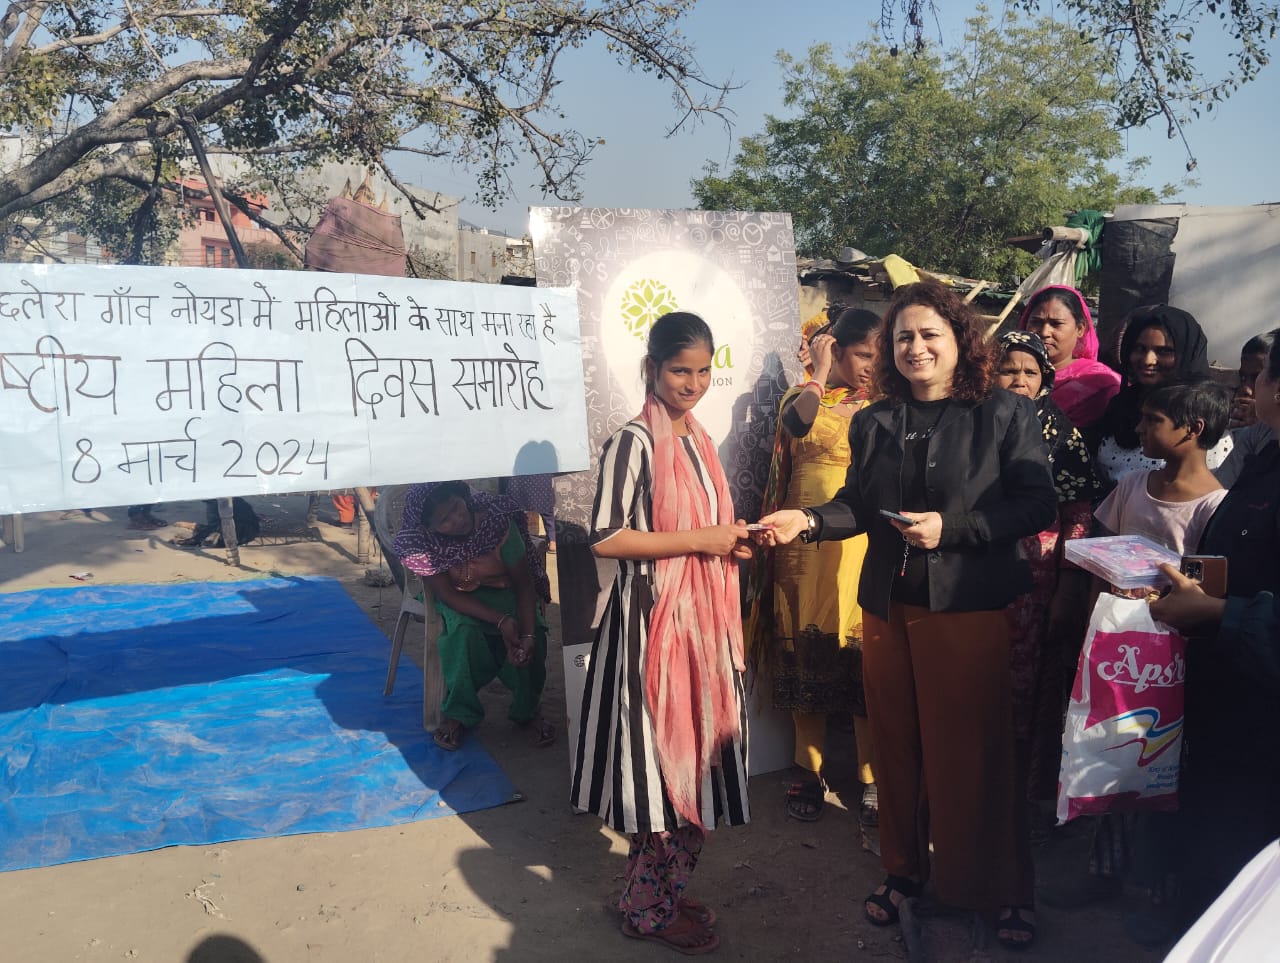 छलेरा गाँव नोयडा में महिलाओं के साथ मना रहा है
ष्ट्रीय महिला दिवस समारोह
8 मार्च 2024
Aps